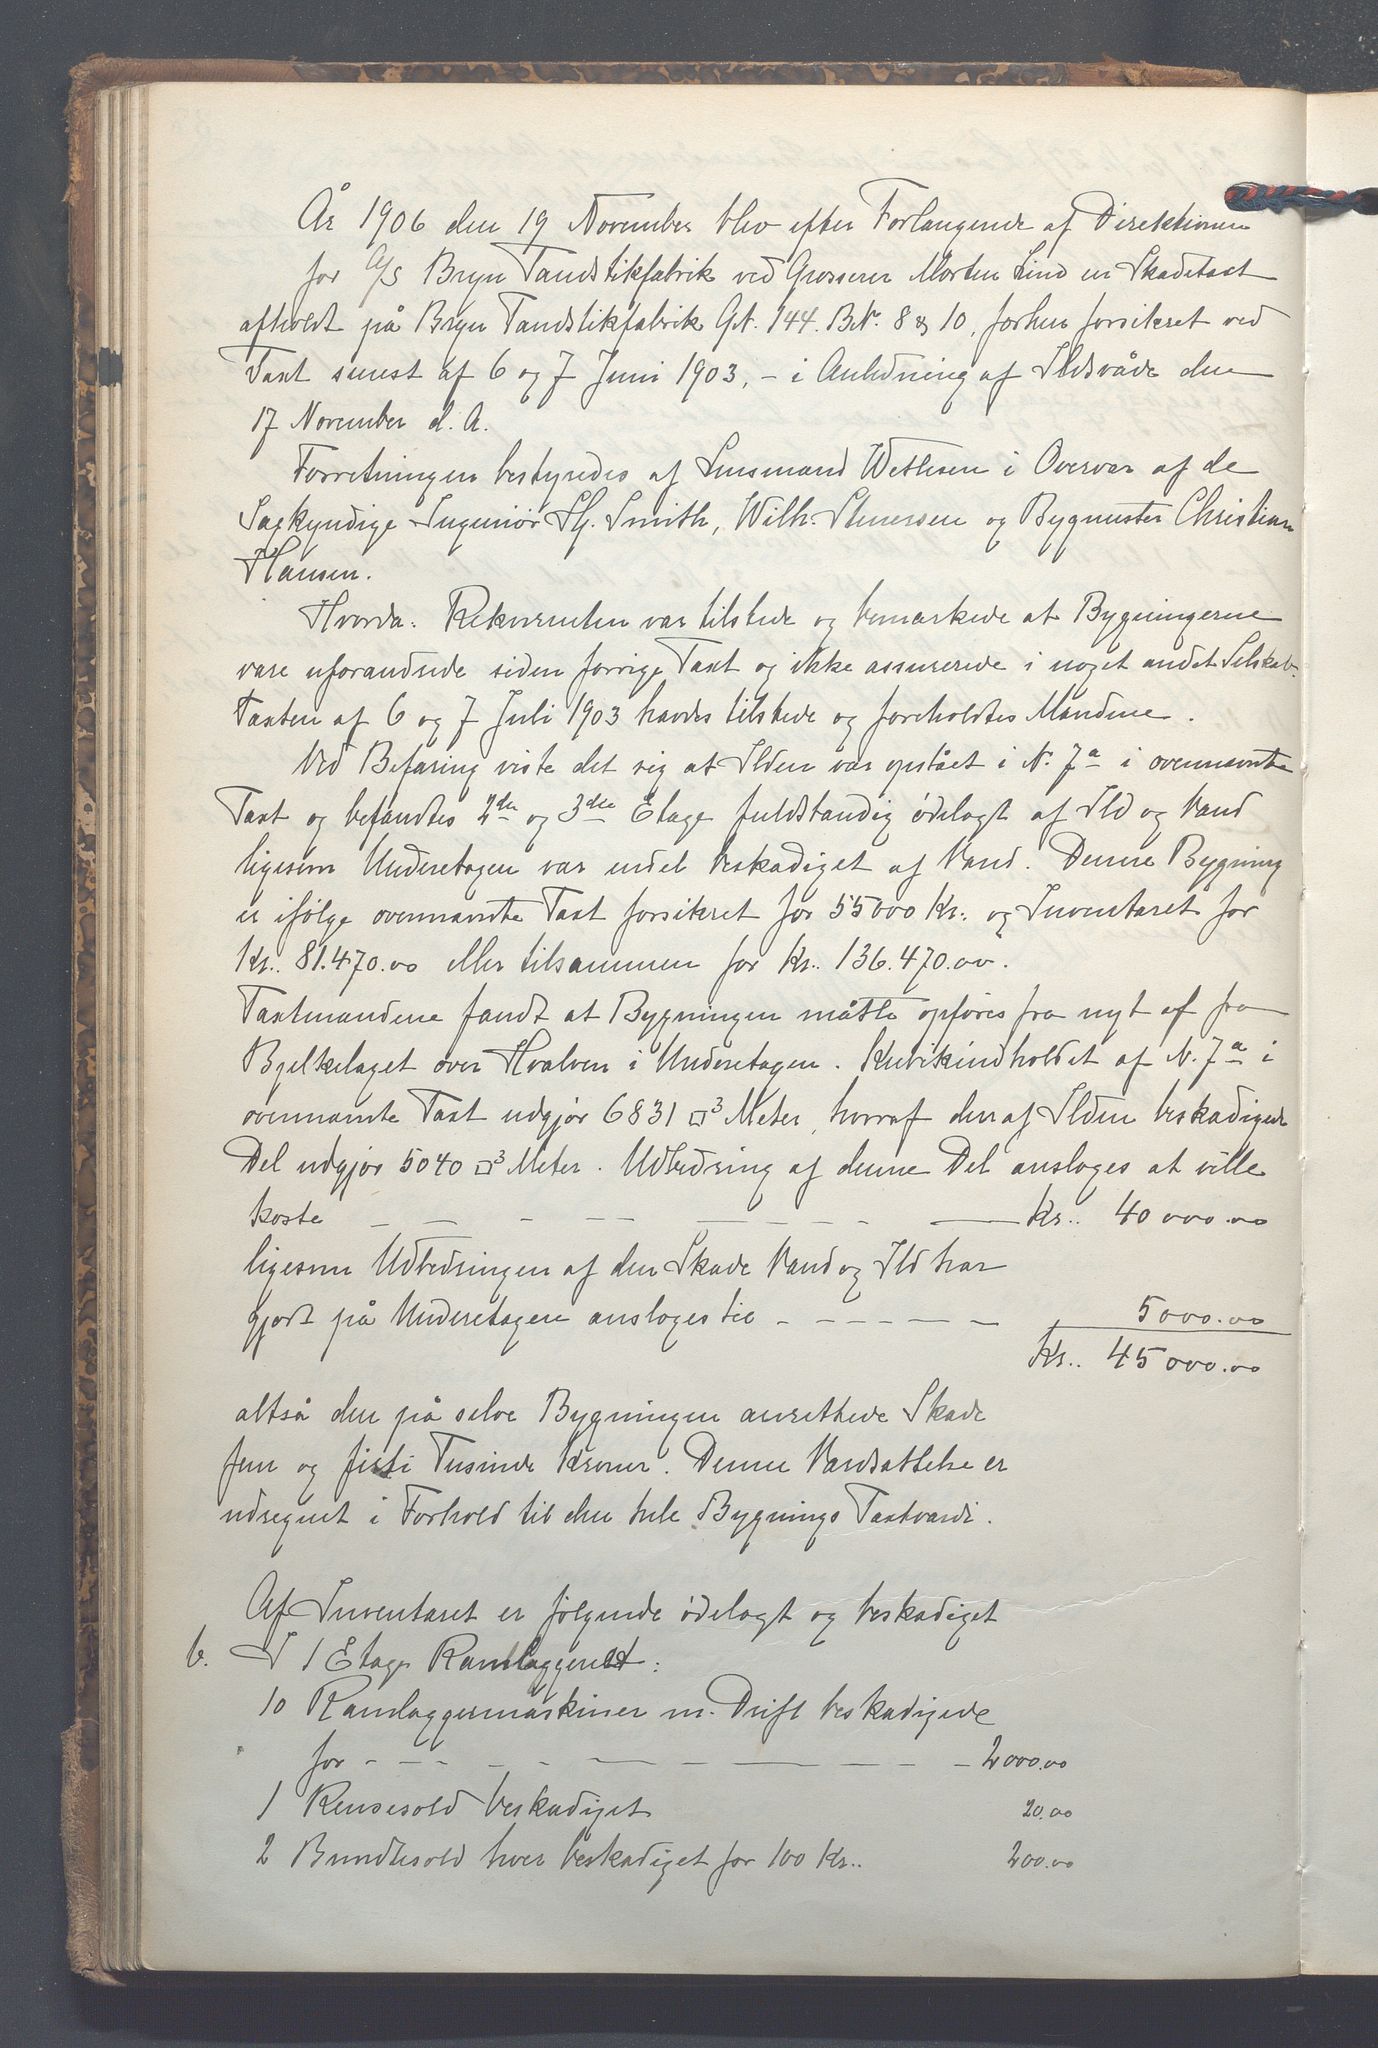 År 1906 den 19 November blev efter Forlangende af Direktionen
for A/S Bryn Tandstikfabrik ved Grosserer Morten Lind en Skadetaxt
afholdt på Bryn Tandstikfabrik GN. 144. BN. 8 & 10, forhen forsikret ved
Taxt senest af 6 og 7 Juni 1903, - i Anledning af Ildsvåde den
17 November d. A.
Forretningen bestyredes af Lensmand Wetlesen i Overvær af de
Sagkyndige Ingeniør Hj. Smith, Wilh. Stenersen og Bygmester Christian
Hansen.
Hvorda: Rekvirenten var tilstede og bemærkede at Bygningerne
vare uforandrede siden forrige Taxt og ikke assurerede i noget andet Selskab.
Taxten af 6 og 7 Juli 1903 havdes tilstede og foreholdtes Mændene.
Ved Befaring viste det sig at Ilden var opstået i N. 7a i ovennævnte
Taxt og befandtes 2den og 3die Etage fuldstændig ødelagt af Ild og Vand
ligesom Underetagen var endel beskadiget af Vand. Denne Bygning
er ifølge ovennævnte Taxt forsikret for 55000 Kr. og Inventaret for
Kr. 81.470.00 eller tilsammen for Kr. 136.470.00.
Taxtmændene fandt at Bygningen måtte opføres fra nyt af fra
Bjelkelaget over Hvælven i Underetagen. Kubikindholdet af N. 7a i
ovennævnte Taxt udgjør 6831 □3 Meter, hvoraf den af Ilden beskadigede
Del udgjør 5040 □3 Meter. Udbedring af denne Del ansloges at ville
koste - - - - - - - - - Kr. 40 000.00
ligesom Udbedringen af den Skade Vand og Ild har
gjort på Underetagen ansloges til - - - - - - 5000.00
Kr. 45 000.00
altså den på selve Bygningen anrettede Skade
fem og firti Tusinde Kroner. Denne Værdsættelse er
udregnet i Forhold til den hele Bygnings Taxtværdi.
Af Inventaret er følgende ødelagt og beskadiget
b. I 1 Etage Ramlæggeriet:
10 Ramlæggermaskiner m. Drift beskadigede
for - - - - - - - - - 2000.00
1 Rensesold beskadiget 20.00
2 Bundtesold hver beskadiget for 100 Kr. 200.00